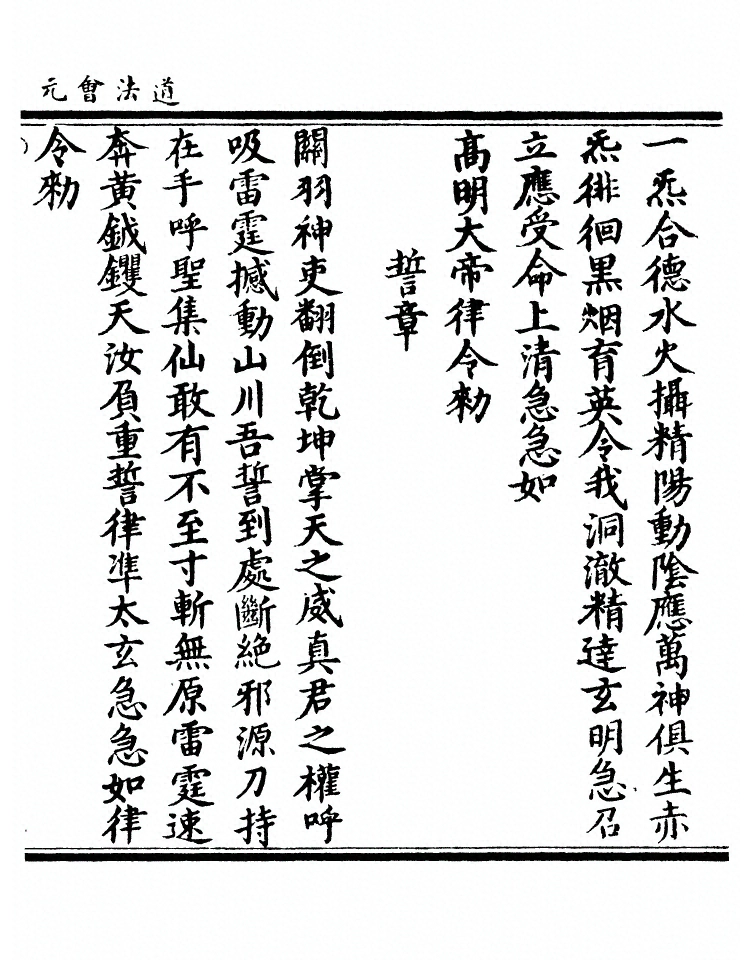 道法會元
一炁合德水火攝精陽動陰應萬神俱生赤
炁徘徊黑烟育英令我洞澈精達玄明急召
立應受命上清急急如
高明大帝律令勑
誓章
關羽神吏翻倒乾坤掌天之威真君之權呼
吸雷霆撼動山川吾誓到處斷絶邪源刀持
在手呼聖集仙敢有不至寸斬無原雷霆速
奔黃鉞鑊天汝負重誓律準太玄急急如律
令勑